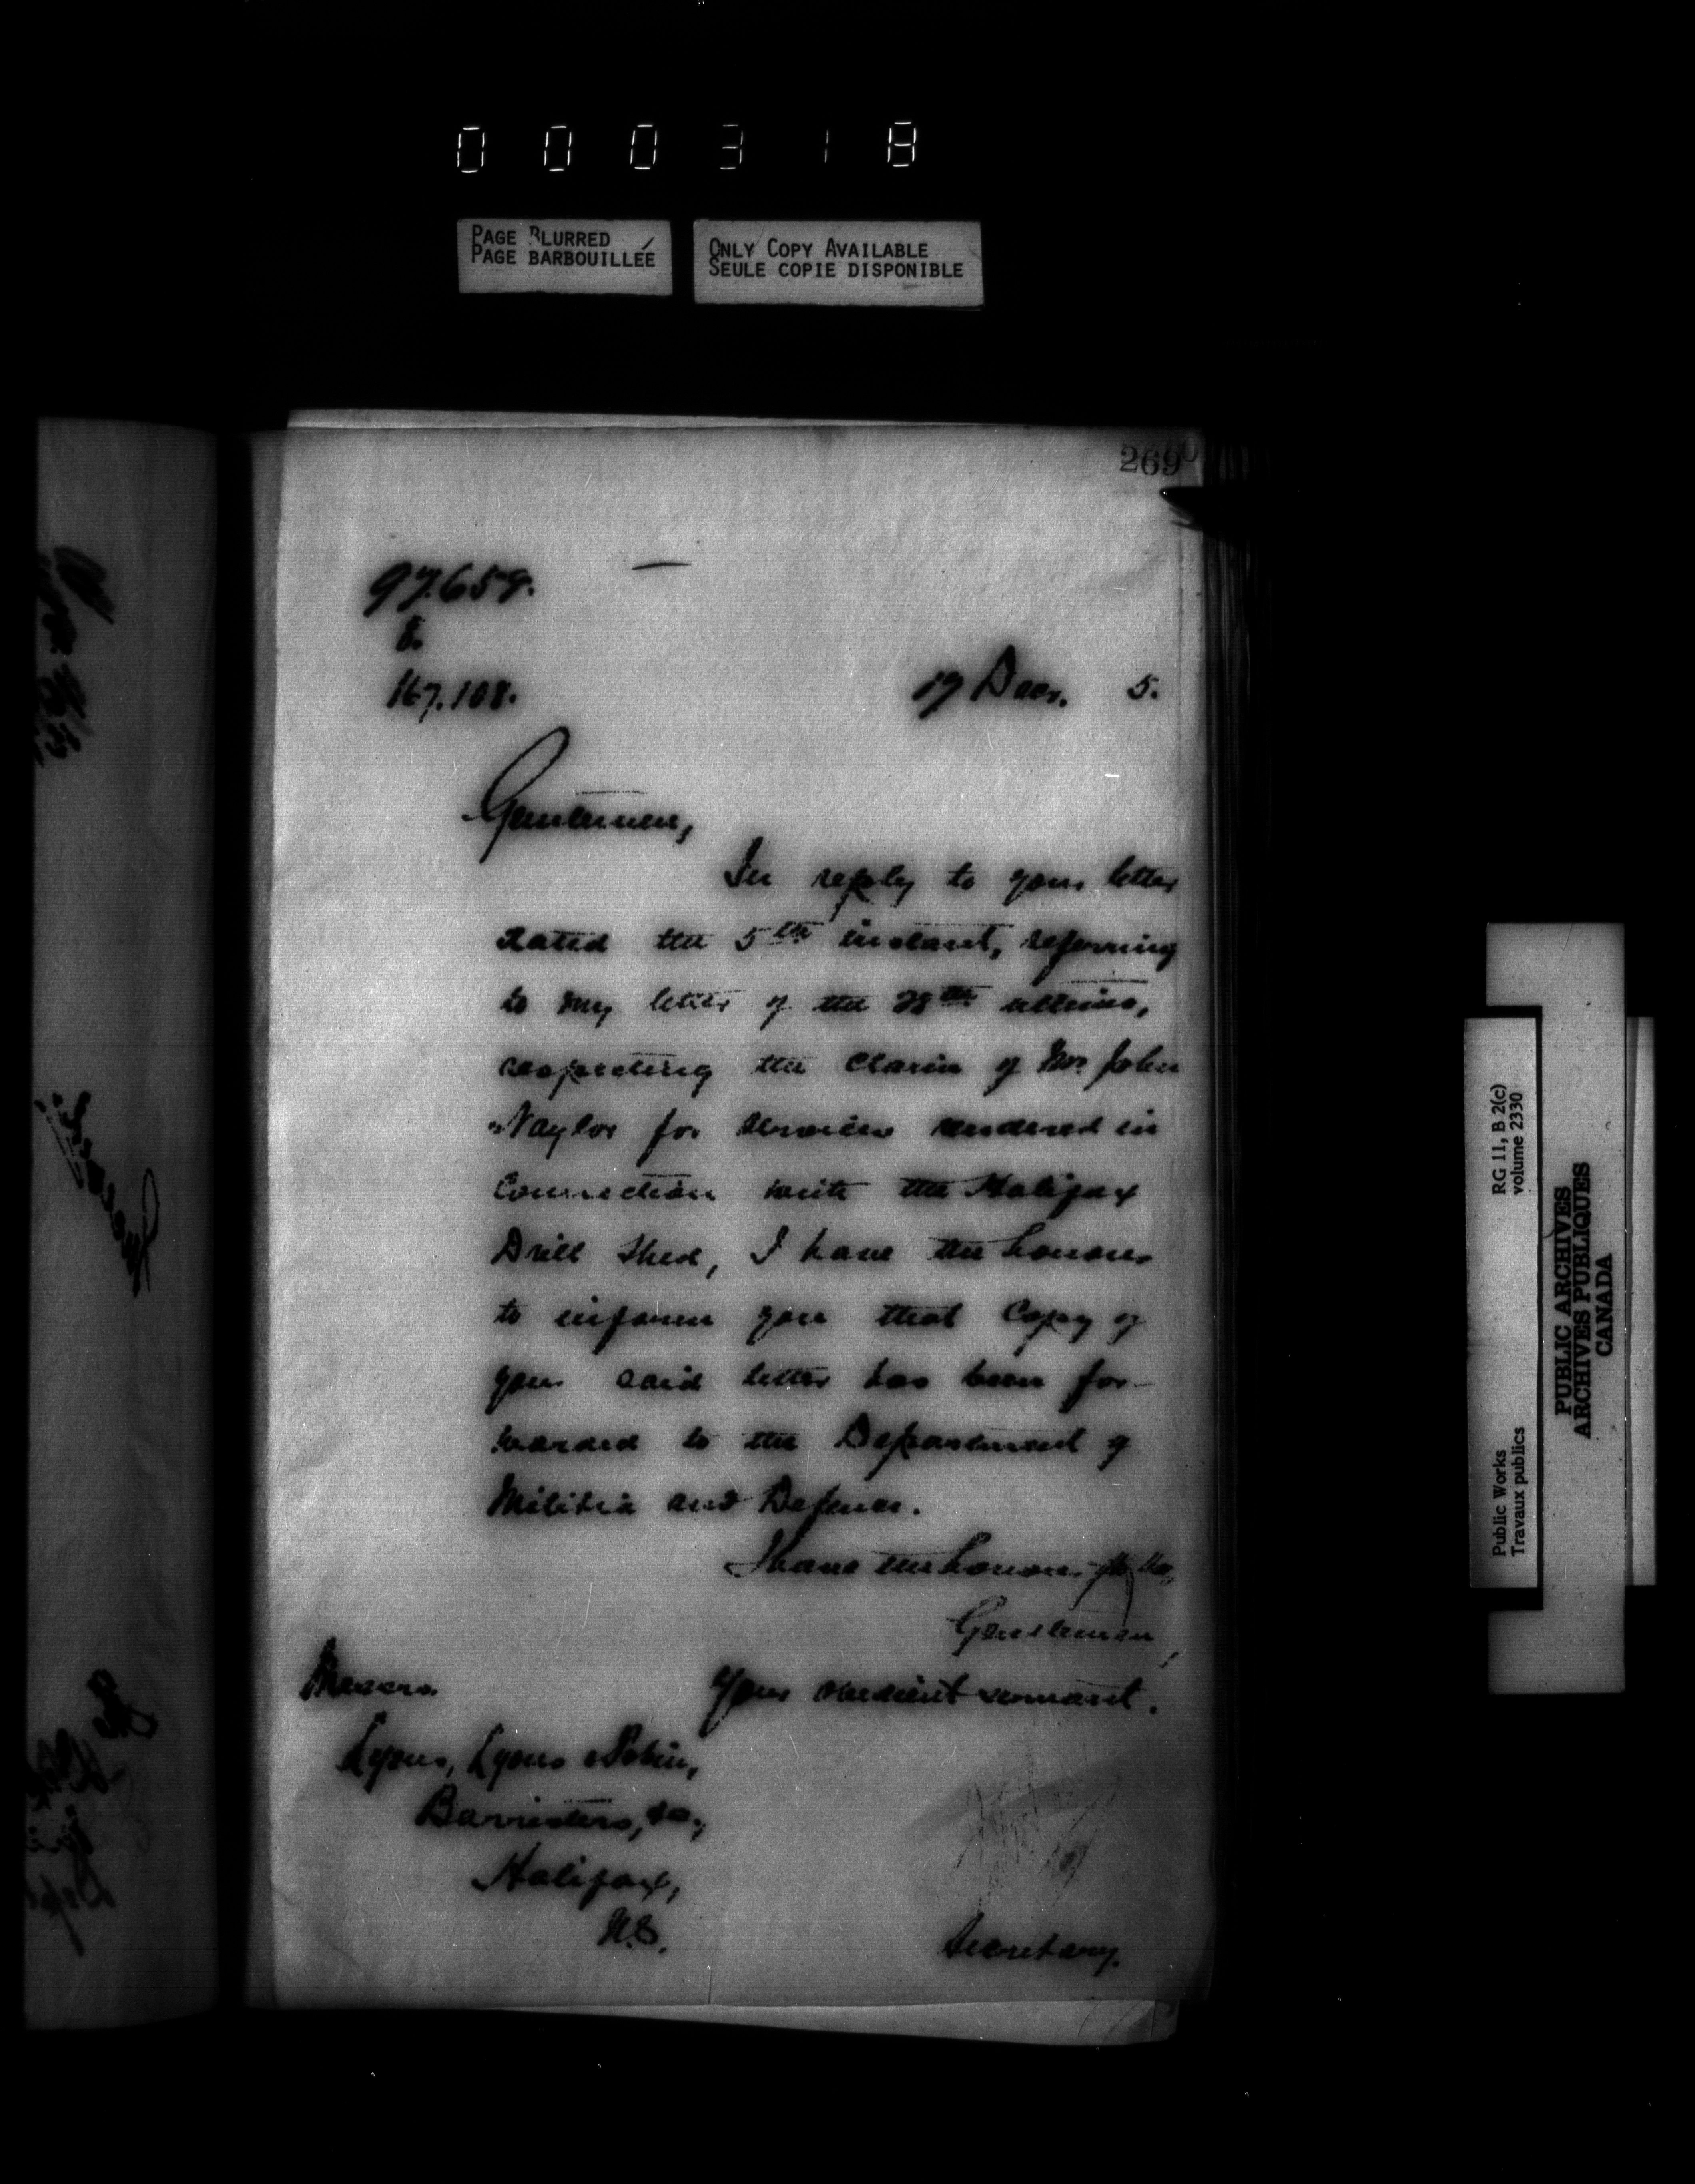 000318
PAGE BLURRED
PAGE BARBOUILLÉE
ONLY COPY AVAILABLE
SEULE COPIE DISPONIBLE
269
97.659.
8.
167.108.
19 Decr. 5.
Gentlemen,
In reply to your letter
dated the 5th instant, referring
to my letter of the 28th ultimo,
respecting the claim of Mr. John
Naylor for services rendered in
connection with the Halifax
Drill Shed, I have the honour
to inform you that copy of
your said letter has been for-
warded to the Department of
Militia and Defence.
I have the honour to be,
Gentlemen,
Your obedient servant.
Messrs.
Lyons, Lyons
Barristers, &c.,
Halifax,
N.S.
Secretary.
Public Works
Travaux publics
RG 11, B 2(c)
volume 2330
PUBLIC ARCHIVES
ARCHIVES PUBLIQUES
CANADA